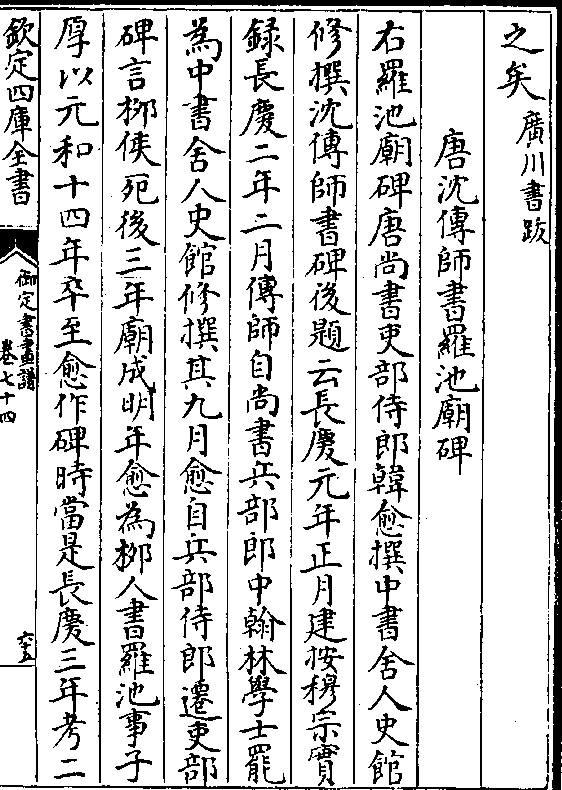 之矣廣川書跋
唐沈傳師書羅池廟碑
右羅池廟碑唐尚書吏部侍郎韓愈撰中書舍人史館
修撰沈傳師書碑後題云長慶元年正月建按穆宗實
録長慶二年二月傳師自尚書兵部郎中翰林學士罷
為中書舍人史館修撰其九月愈自兵部侍郎遷吏部
碑言栁侯死後三年廟成明年愈為栁人書羅池事子
厚以元和十四年卒至愈作碑時當是長慶三年考二
欽定四庫全書
御定書畫譜
卷七十四
六五